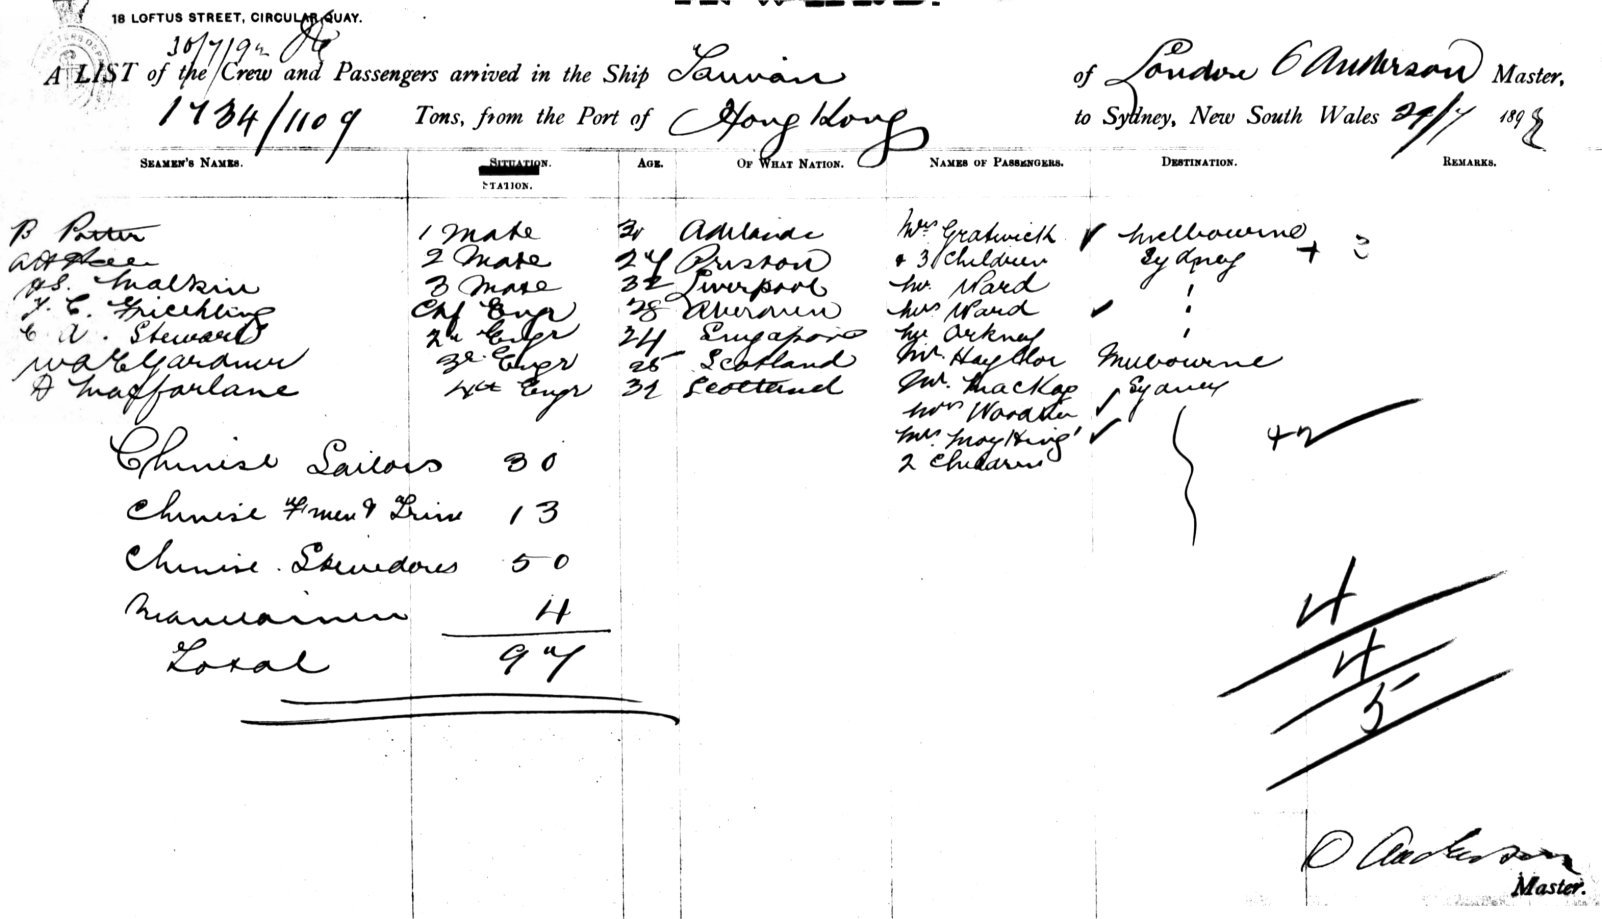 18 LOFTUS STREET, CIRCULAR QUAY.
30/7/92
A LIST of the Crew and Passengers arrived in the Ship Taiwan of London C Anderson Master,
1734/1109 Tons, from the Port of Hong Kong to Sydney, New South Wales 29/7 1892
SEAMEN'S NAMES. SITUATION. AGE. OF WHAT NATION. NAMES OF PASSENGERS. DESTINATION. REMARKS.
STATION.
B Potter 1 Mate Adelaide Mrs Gratwick Melbourne
2 Mate 27 Preston + 3 Children Sydney + 3
Malkin 3 Mate 32 Liverpool Mr. Ward "
Chf Engr 28 Aberdeen Mrs Ward "
C A. Steward 2d Engr 24 Singapore Mr. Orkney "
Gardner 3d Engr 25 Scotland Mr. Melbourne
D Macffarlane 4th Engr 32 Scotland Mr. MacKay Sydney
Mrs
Mrs Moy Hing +2
2 Children
Chinise Sailors 30
Chinise F men & Trim 13
Chinise. Stewedores 50
4
Total 97
4
4
5
Anderson
Master.